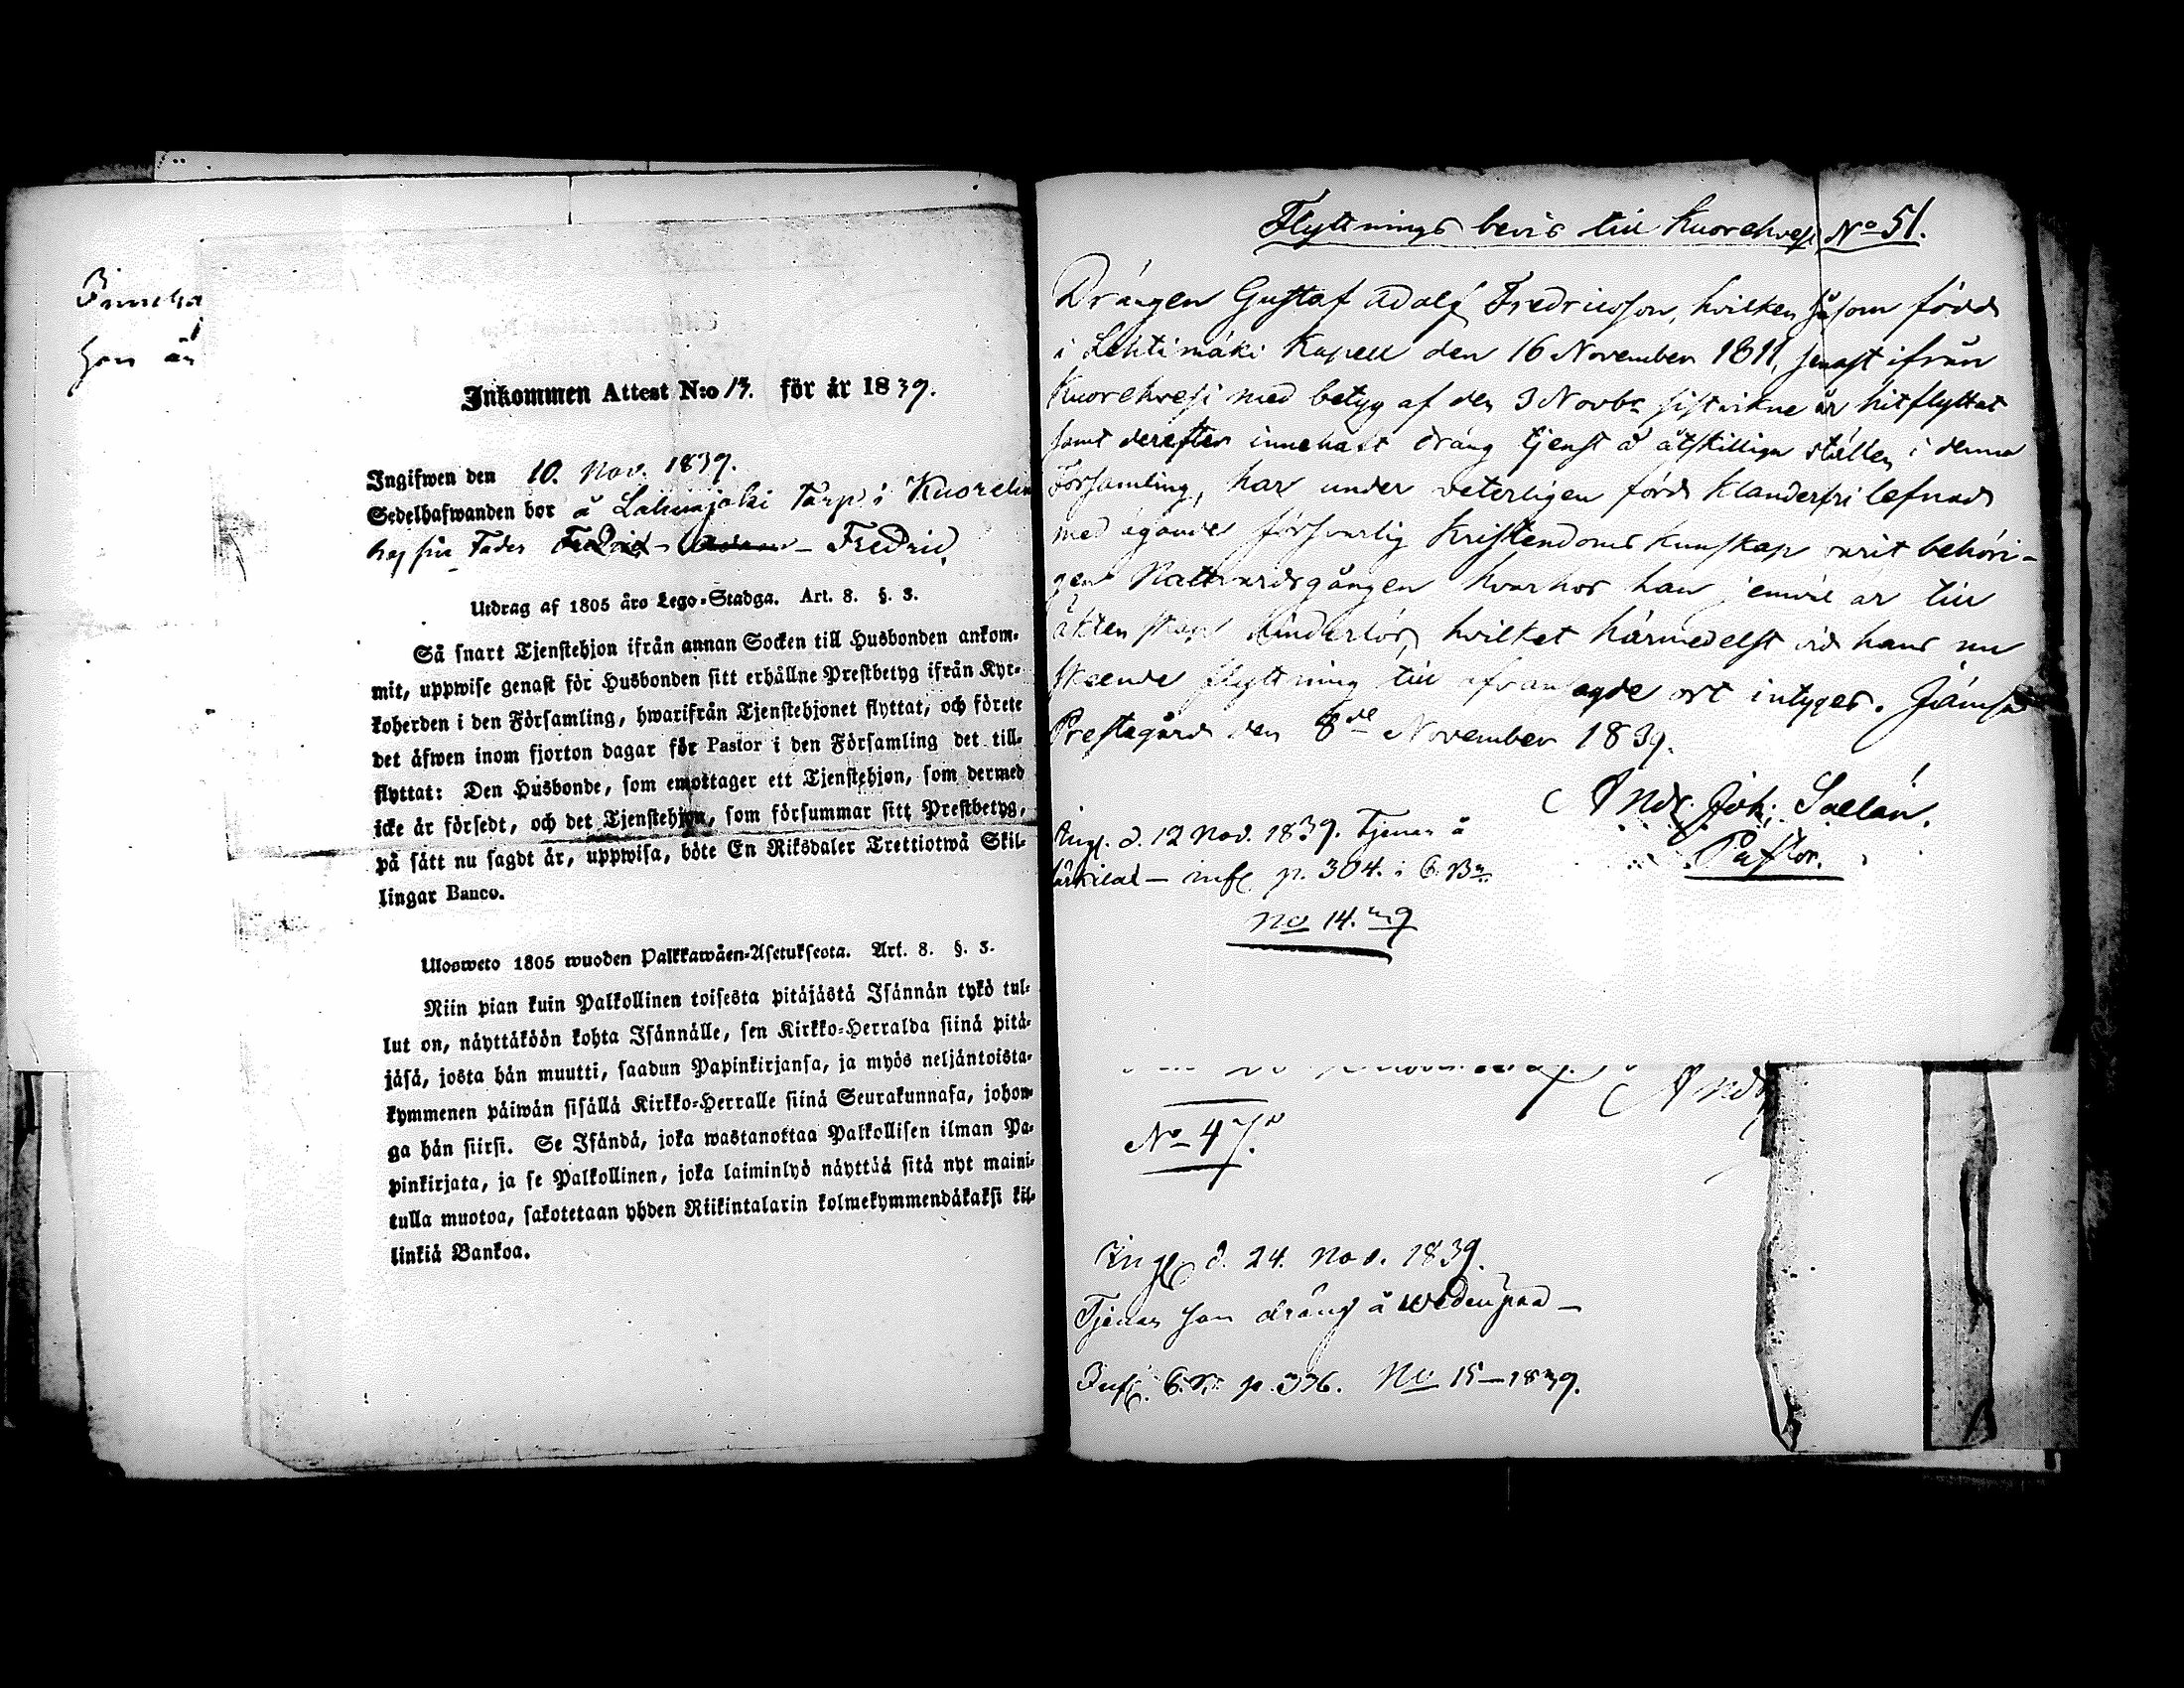 Inneha
han är
Inkommen Attest N:o 13. för år 1839.
Ingifwen den 10. Nov. 1839.
Sedelhafwanden bor å Lahnajoki Torp i Kuoreh
hos sin Fader Fredric Fredric
Utdrag af 1805 års Lego-Stadga. Art. 8. §. 3.
Så snart Tjenstehjon ifrån annan Socken till Husbonden ankom-
mit, uppwise genast för Husbonden sitt erhållne Prestbetyg ifrån Kyr-
koherden i den Församling, hwarifrån Tjenstehjonet flyttat, och förete
det äfwen inom fjorton dagar för Pastor i den Församling det till-
flyttat: Den Husbonde, som emottager ett Tjenstehjon, som dermed
icke är försedt, och det Tjenstehjon, som försummar sitt Prestbetyg,
på sätt nu sagdt är, uppwisa, böte En Riksdaler Trettiotwå Skil-
lingar Banco.
Ulosweto 1805 wuoden Palkkawäen-Asetuksesta. Art. 8. §. 3.
Niin pian kuin Palkollinen toisesta pitäjästä Isännän tykö tul-
lut on, näyttäköön kohta Isännälle, sen Kirkko-Herralda siinä pitä-
jäsä, josta hän muutti, saadun Papinkirjansa, ja myös neljäntoista-
kymmenen päiwän sisällä Kirkko-Herralle siinä Seurakunnasa, johon-
ga hän siirsi. Se Isändä, joka wastanottaa Palkollisen ilman Pa-
pinkirjata, ja se Palkollinen, joka laiminlyö näyttää sitä nyt maini-
tulla muotoa, sakotetaan yhden Riikintalarin kolmekymmendäkaksi kil-
linkiä Bankoa.
Flyttnings bevis till Kuorehvesi No 51.
Drängen Gustaf Adolf Fredricsson, hvilken såsom född
i Lehtimäki Kapell den 16 November 1811, senast ifrån
Kuorehvesi med betyg af den 3 Novbr sistvikne år hitflyttat
samt derefter innehaft dräng tjenst å åtskilliga ställen i denna
Församling, har under veterligen förd klanderfri lefnad
med ägande försvarlig Kristendoms kunskap varit behöri-
gen Nattvardsgången hvarhos han jemväl är till
äktenskap hinderlös, hvilket härmedelst vid hans nu
skeende flyttning till ofvansagde ort intygas. Jämsä
Prestegård den 8de November 1839.
Andr. Joh: Sallán.
Pastor.
Ingl. d. 12 Nov. 1839. Tjenar å
infl p. 304. i C. Bn
No 14. 39
And
No 47.
Ingl d. 24. Nov. 1839.
Tjenar som dräng å Wedenpää —
Infl. C.B. p. 336. No 15—1839.